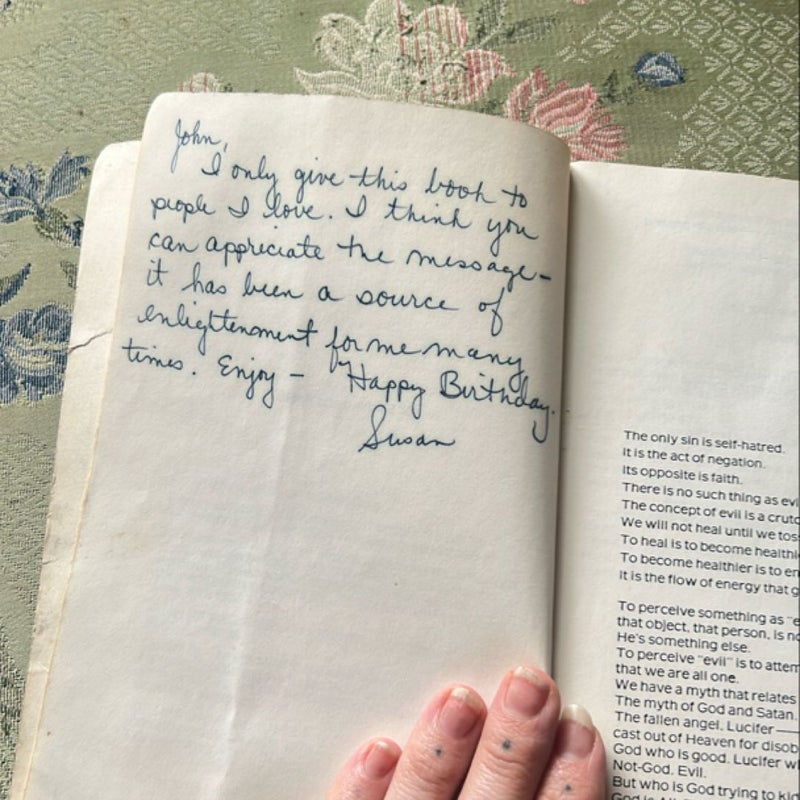 John,
I only give this book to
people I love. I think you
can appreciate the message –
it has been a source of
enlightenment for me many
times. Enjoy – Happy Birthday.
Susan
The only sin is self-hatred.
It is the act of negation.
Its opposite is faith.
There is no such thing as
The concept of evil is a
We will not heal until we
To heal is to become
To become healthier is to
It is the flow of energy that
To perceive something as
that object, that person, is
He's something else.
To perceive "evil" is to
that we are all one.
We have a myth that relates
The myth of God and Satan.
The fallen angel, Lucifer —
cast out of Heaven for
God who is good. Lucifer
Not-God. Evil.
But who is God trying to
God is